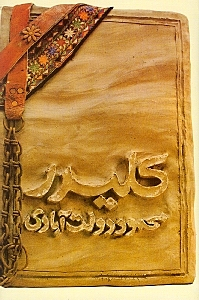 کلیدر
محمود دولت آبادی